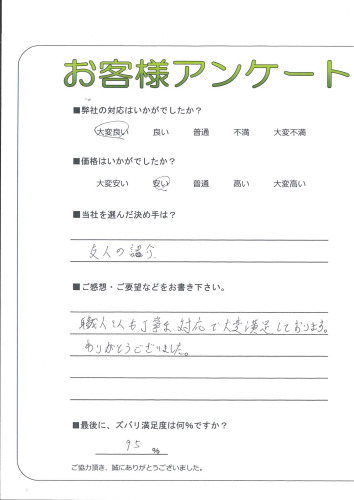 お客様アンケート
■弊社の対応はいかがでしたか？
大変良い 良い 普通 不満 大変不満
■価格はいかがでしたか？
大変安い 安い 普通 高い 大変高い
■当社を選んだ決め手は？
友人の紹介
■ご感想・ご要望などをお書き下さい。
職人さんも丁寧な対応で大変満足しております。
ありがとうございました。
■最後に、ズバリ満足度は何%ですか？
95 %
ご協力頂き、誠にありがとうございました。